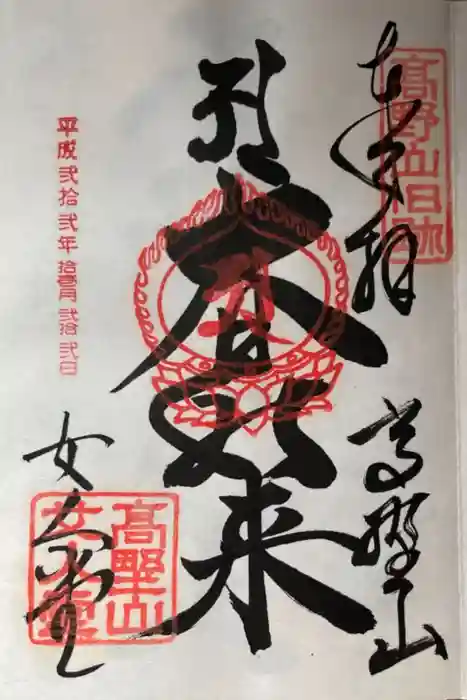 高野山旧跡
奉拜
高野山
大日如来
平成弐拾弐年拾壹月弐拾弐日
女人堂
高野山
女人堂